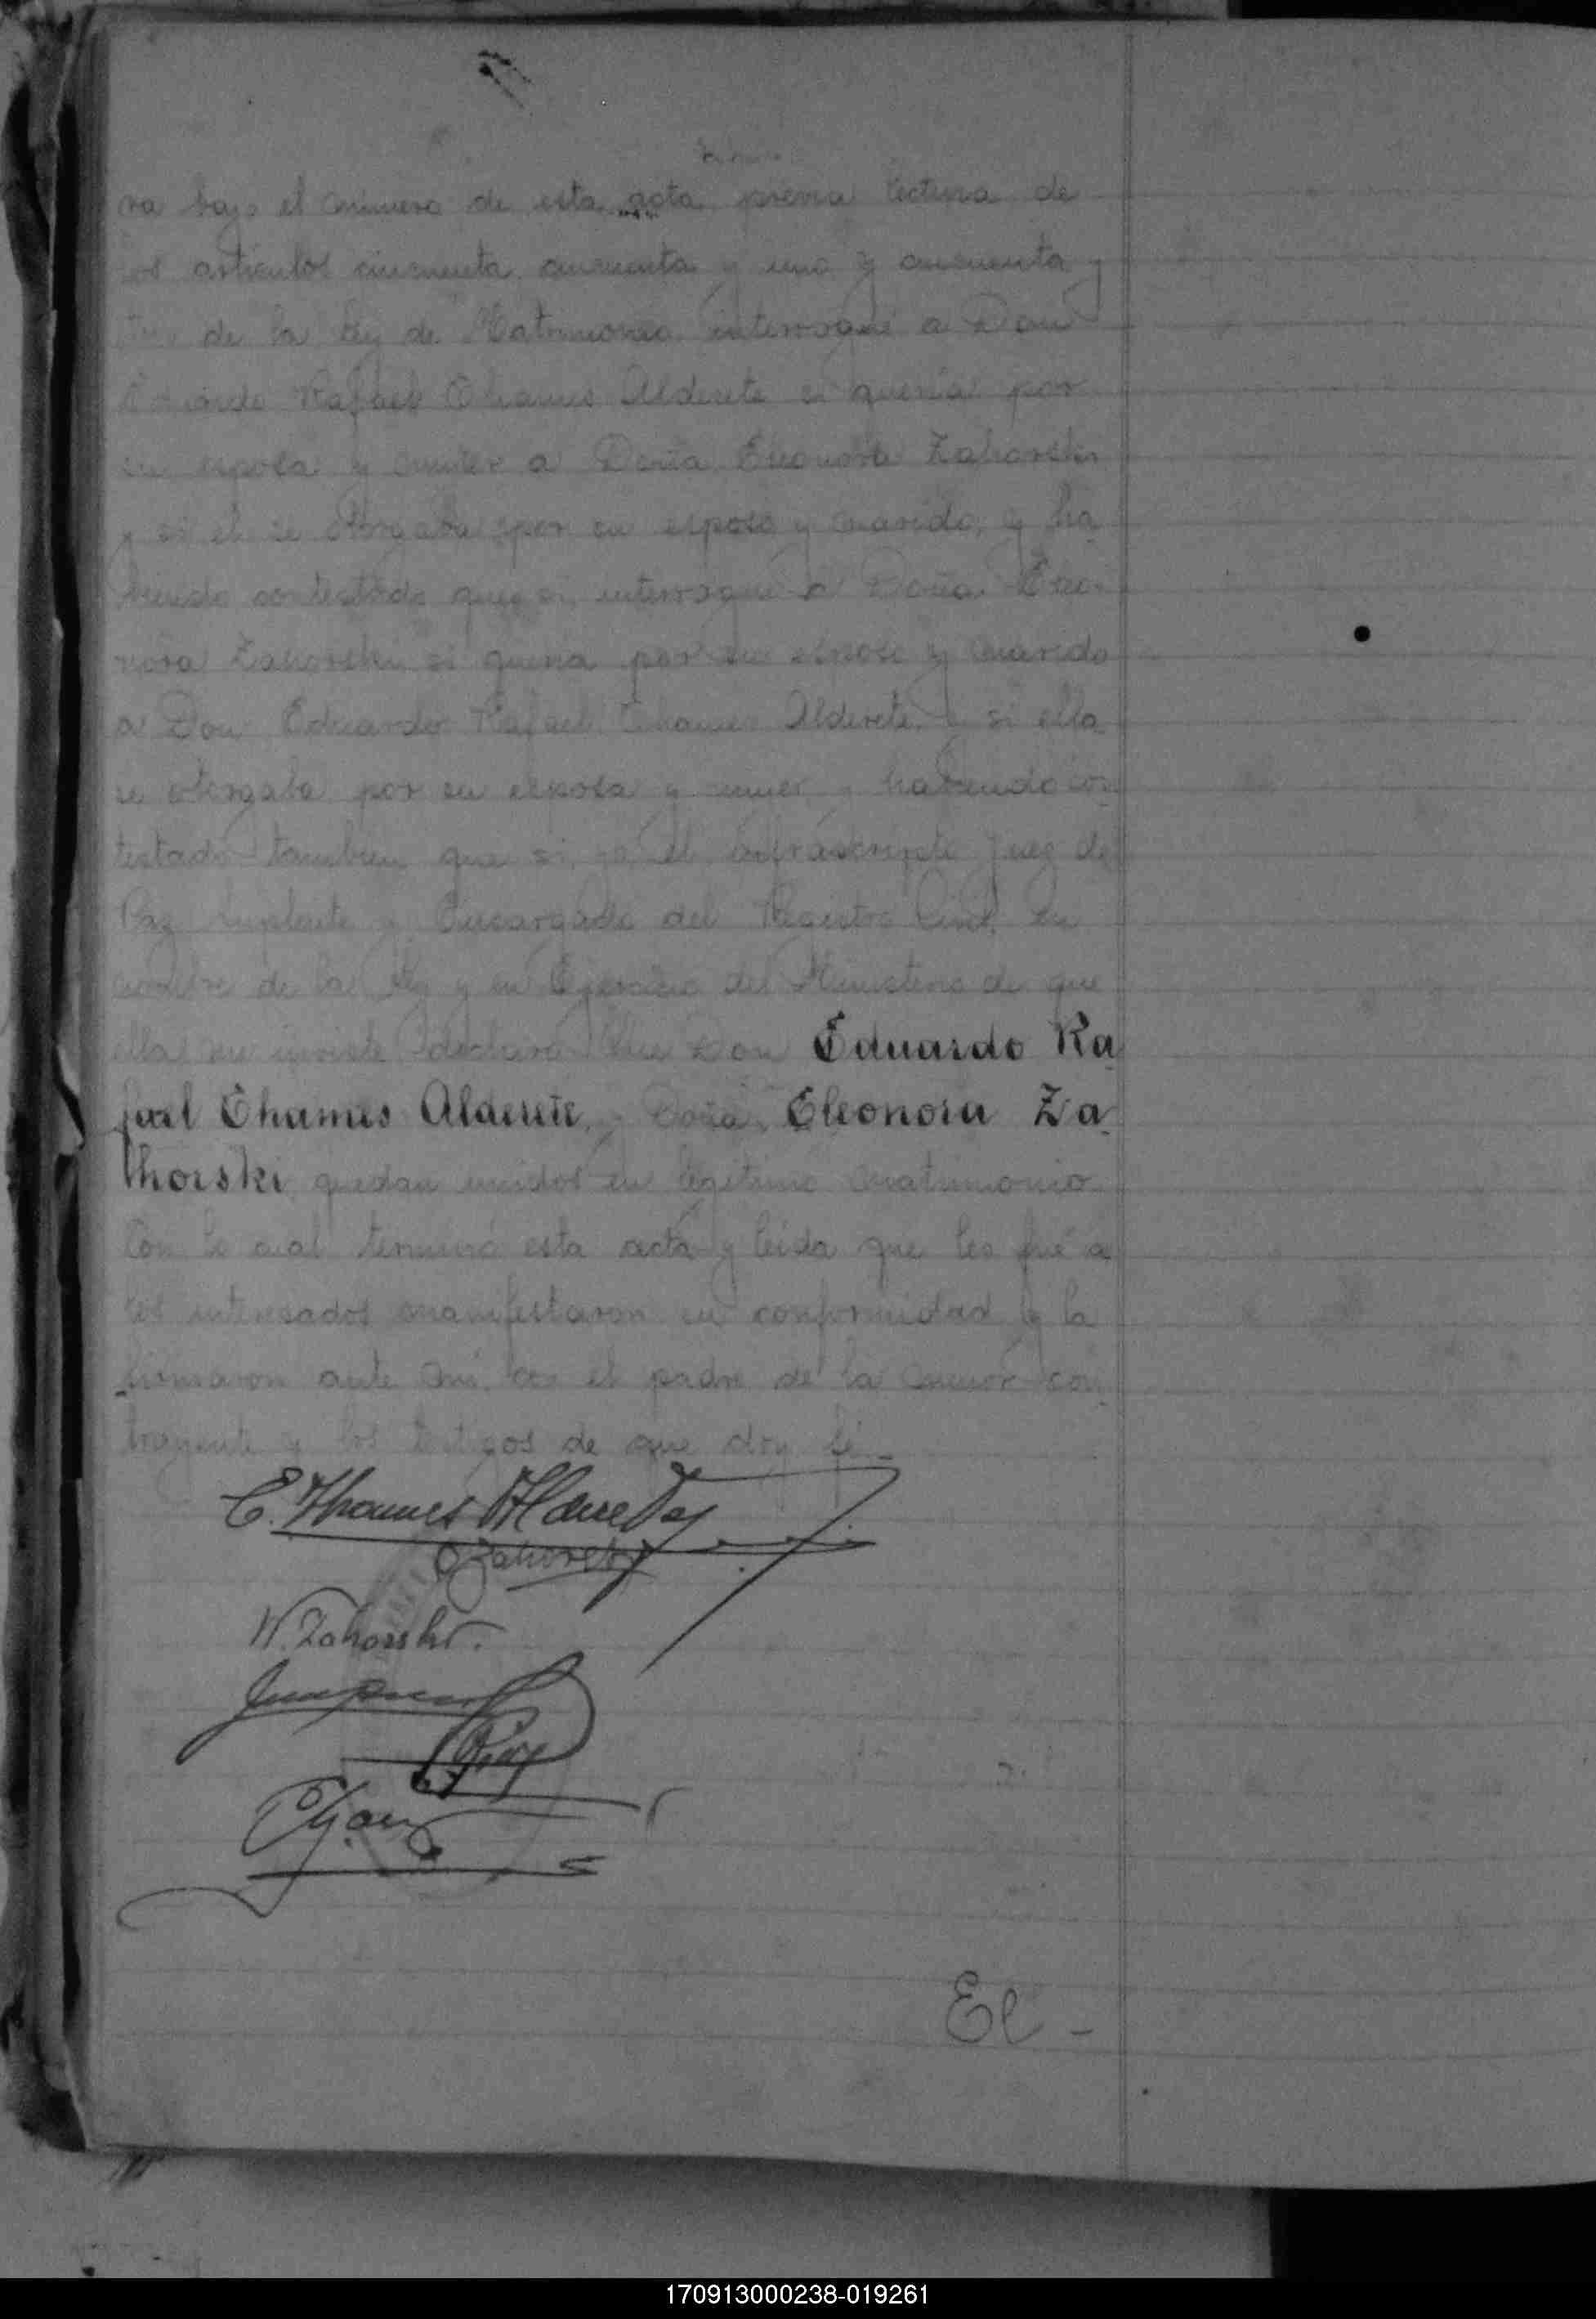 ra bajo el número de esta acta previa lectura de
los artículos cincuenta, cincuenta y uno y cincuenta y
de la ley de Matrimonio, interrogué a Don
Eduardo Rafael Thames Alderete si quería por
su esposa y mujer a Doña Eleonora Zahorski
y si el se otorgaba por su esposo y marido, y ha
biendo contestado que si, interrogué a Doña Eleo-
nora Zahorski si queria por su esposo y marido
a Don Eduardo Rafael Thames Alderete y si ella
se otorgaba por su esposa y mujer y habiendo con
testado tambien que si, yo el infrascripto Juez de
Paz suplente y Encargado del Registro Civil en
nombre de la ley y en Ejercicio del Ministerio de que
ella me inviste declaro Que Don Eduardo Ra
fael Thames Alderete, y Doña Eleonora Za
horski, quedan unidos en legitimo matrimonio
Con lo cual terminó esta acta y leída que les fué a
los interesados manifestaron su conformidad y la
firmaron ante mí con el padre de la menor con
trayente y los testigos de que doy fé-
E. Thames Alderete
Zahorski
W. Zahorski.
El -
170913000238-019261